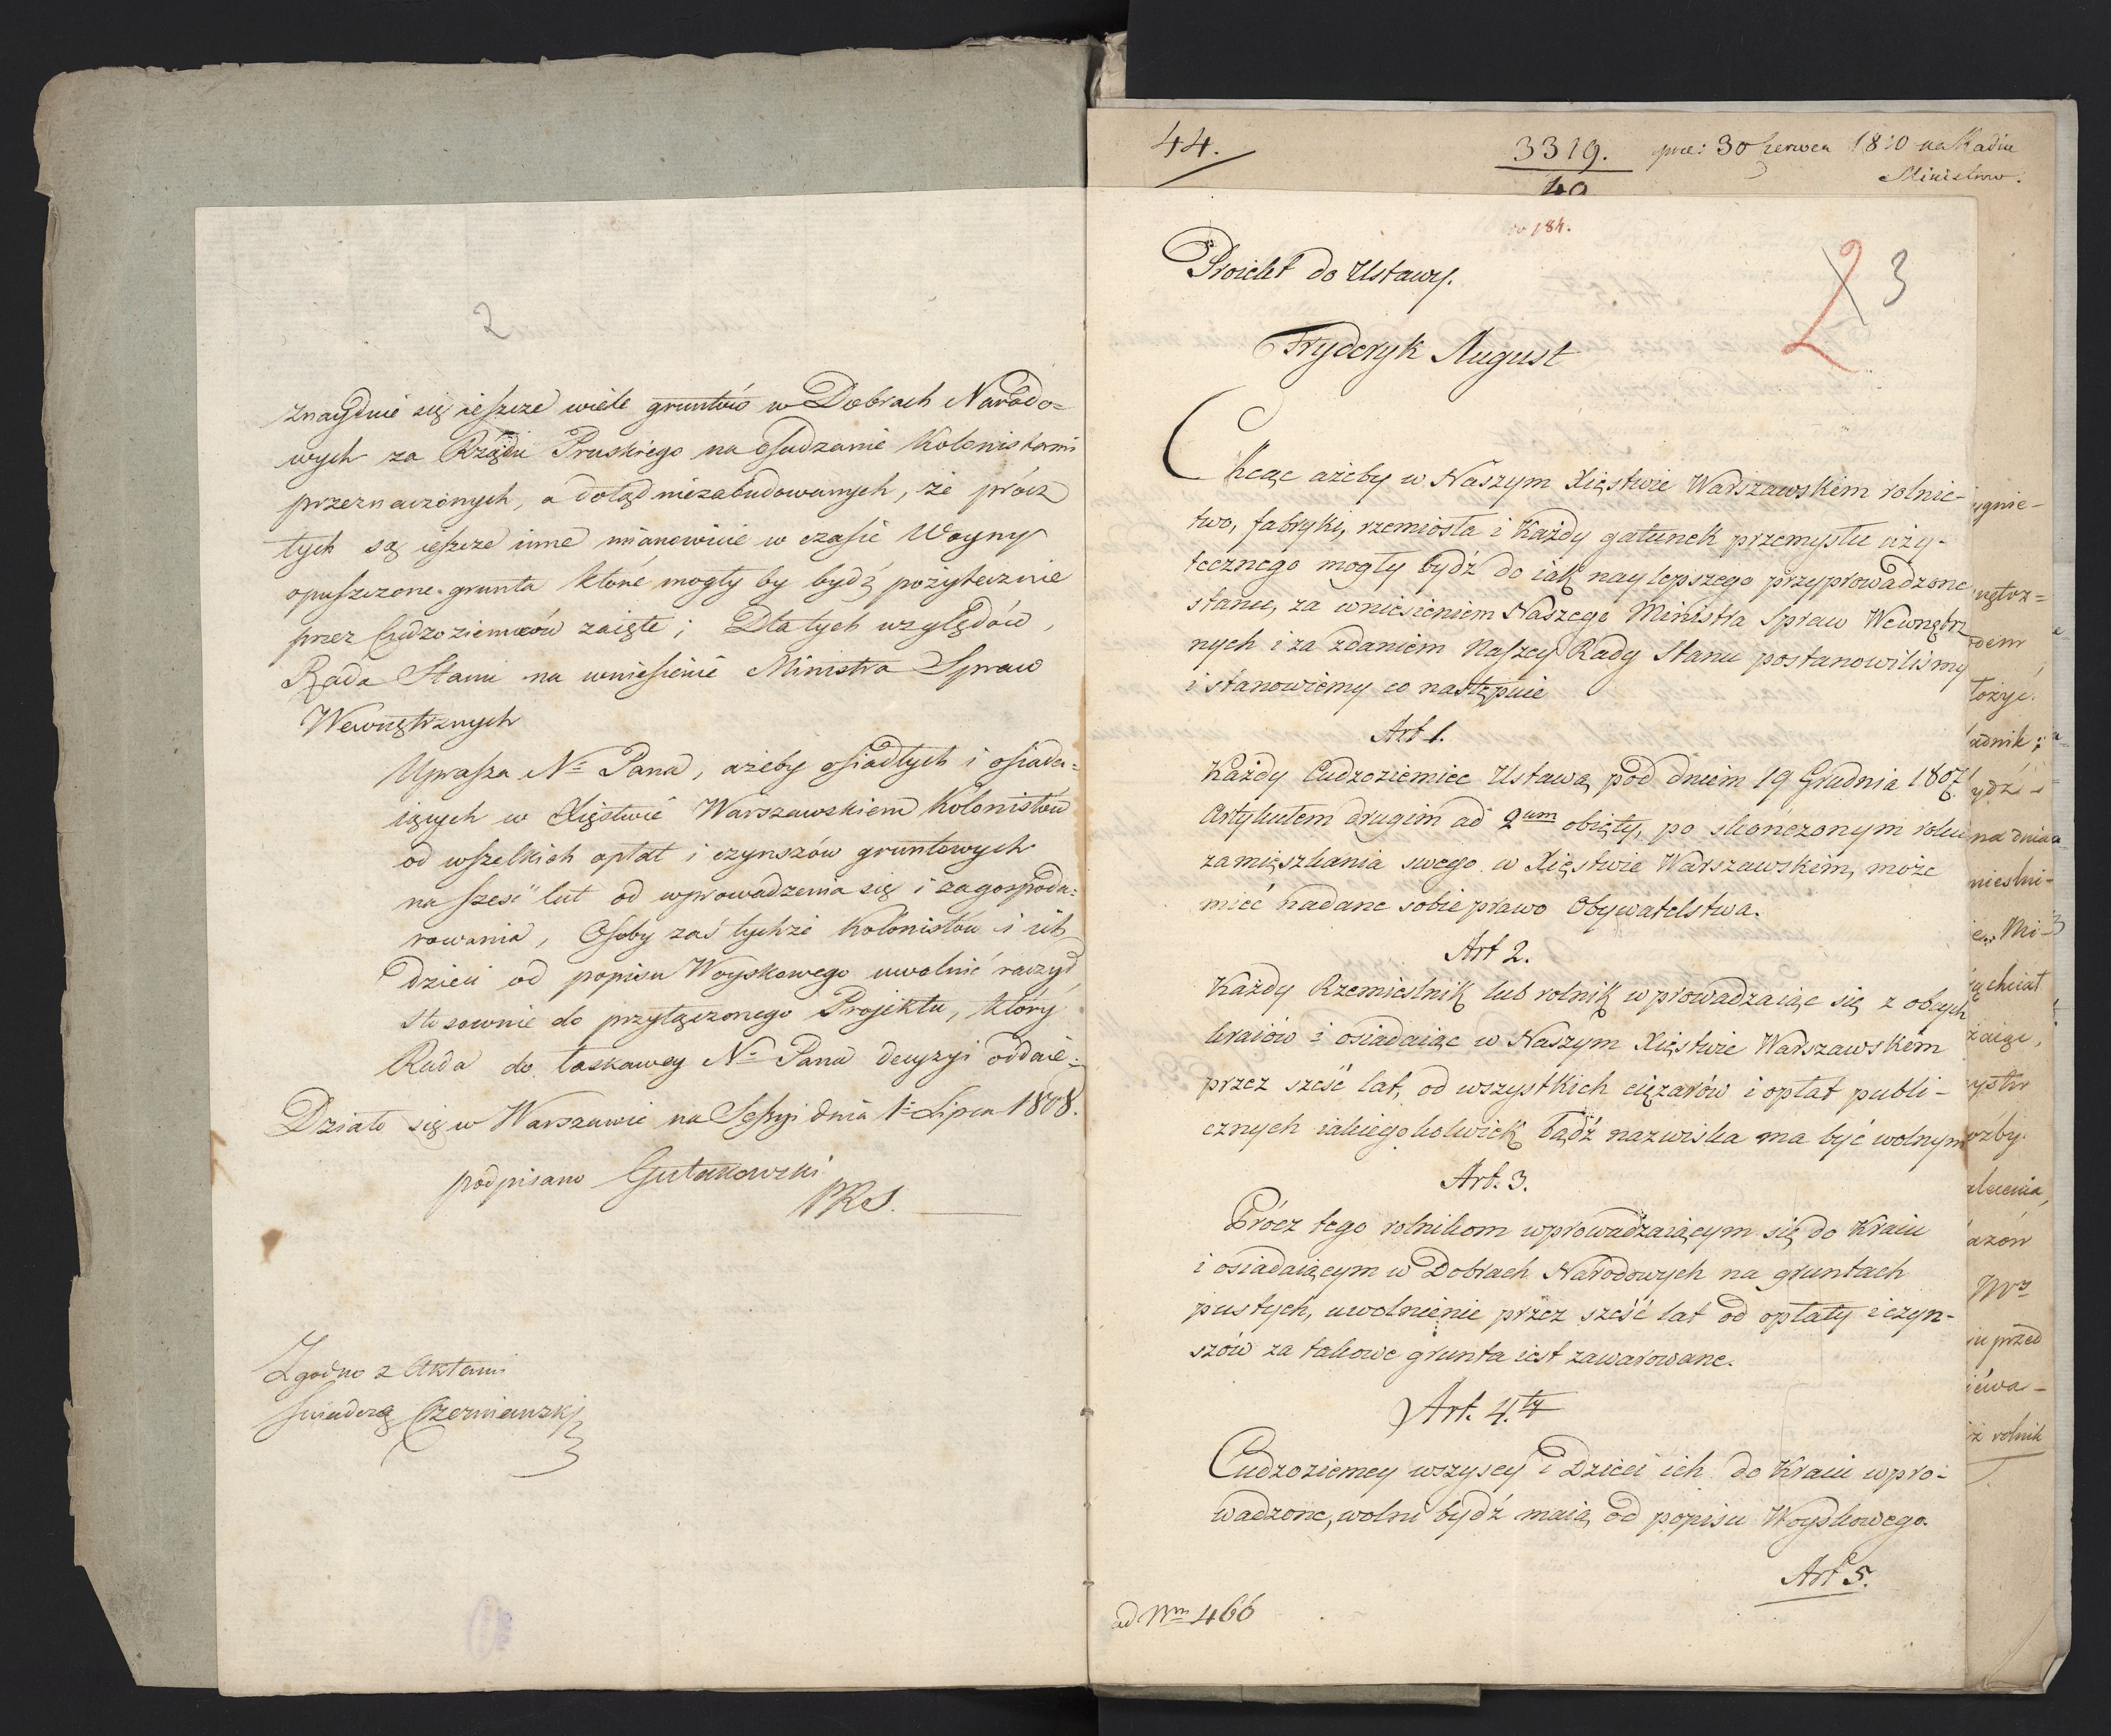 2
znayduie się ieszcze wiele gruntów w Dobrach Narodo=
wych za Rządu Pruskiego na osadzanie Kolonistami
przeznaczonych, a dotąd niezabudowanych, że prócz
tych są ieszcze inne mianowicie w czasie Woyny
opuszczone grunta które mogły by bydź pożytecznie
przez Cudzoziemców zaięte; Dla tych względów,
Rada Stanu na wniesienie Ministra Spraw
Wewnętrznych
Uprasza N= Pana, ażeby osiadłych i osiada=
iących w Xięstwie Warszawskiem Kolonistów
od wszelkich opłat i czynszów gruntowych
na sześć lat od wprowadzenia się i zagospoda=
rowania, Osoby zaś tychże Kolonistów i ich
dzieci od popisu Woyskowego uwolnić raczył
stosownie do przyłączonego Projektu, który
Rada do łaskawey N= Pana decyzyi oddaie.
Działo się w Warszawie na Sessyi dnia 1= Lipca 1808.
podpisano Gutakowski
PRS.
Zgodno z Aktami
świadczą Czerniawski
44.
3319. prae: 30 Czerwca 1810 na Radzie
Ministrów.
40
do 184.
2 3
Proiekt do Ustawy.
Fryderyk August
Chcąc ażeby w Naszym Xięstwie Warszawskiem rolnic-
two, fabryki, rzemiosła i Każdy gatunek przemysłu uży-
tecznego mogły bydź do iak naylepszego przyprowadzone
stanu, za wniesieniem Naszego Ministra Spraw Wewnętrz
nych i za zdaniem Naszey Rady Stanu postanowiliśmy
i stanowiemy co następuie
Art 1.
Każdy Cudzoziemiec Ustawą pod dniem 19 Grudnia 1807.
Artykułem drugim ad 2um obięty, po skończonym roku
zamięszkania swego w Xięstwie Warszawskiem, może
mieć nadane sobie prawo Obywatelstwa.
Art 2.
Każdy Rzemieślnik lub rolnik wprowadzaiąc się z obcych
kraiów i osiadaiąc w Naszym Xięstwie Warszawskiem
przez sześć lat, od wszystkich ciężarów i opłat publi-
cznych iakiegokolwiek bądź nazwiska ma być wolnym
Art. 3.
Prócz tego rolnikom wprowadzaiącym się do Kraiu
i osiadaiącym w Dobrach Narodowych na gruntach
pustych, uwolnienie przez sześć lat od opłaty i czyn-
szów za takowe grunta iest zawarowane.
Art. 4.ty
Cudzoziemcy wszyscy i Dzieci ich do Kraiu wpro-
wadzone, wolni bydź maią od popisu Woyskowego.
Art 5.
ad Nrm 466